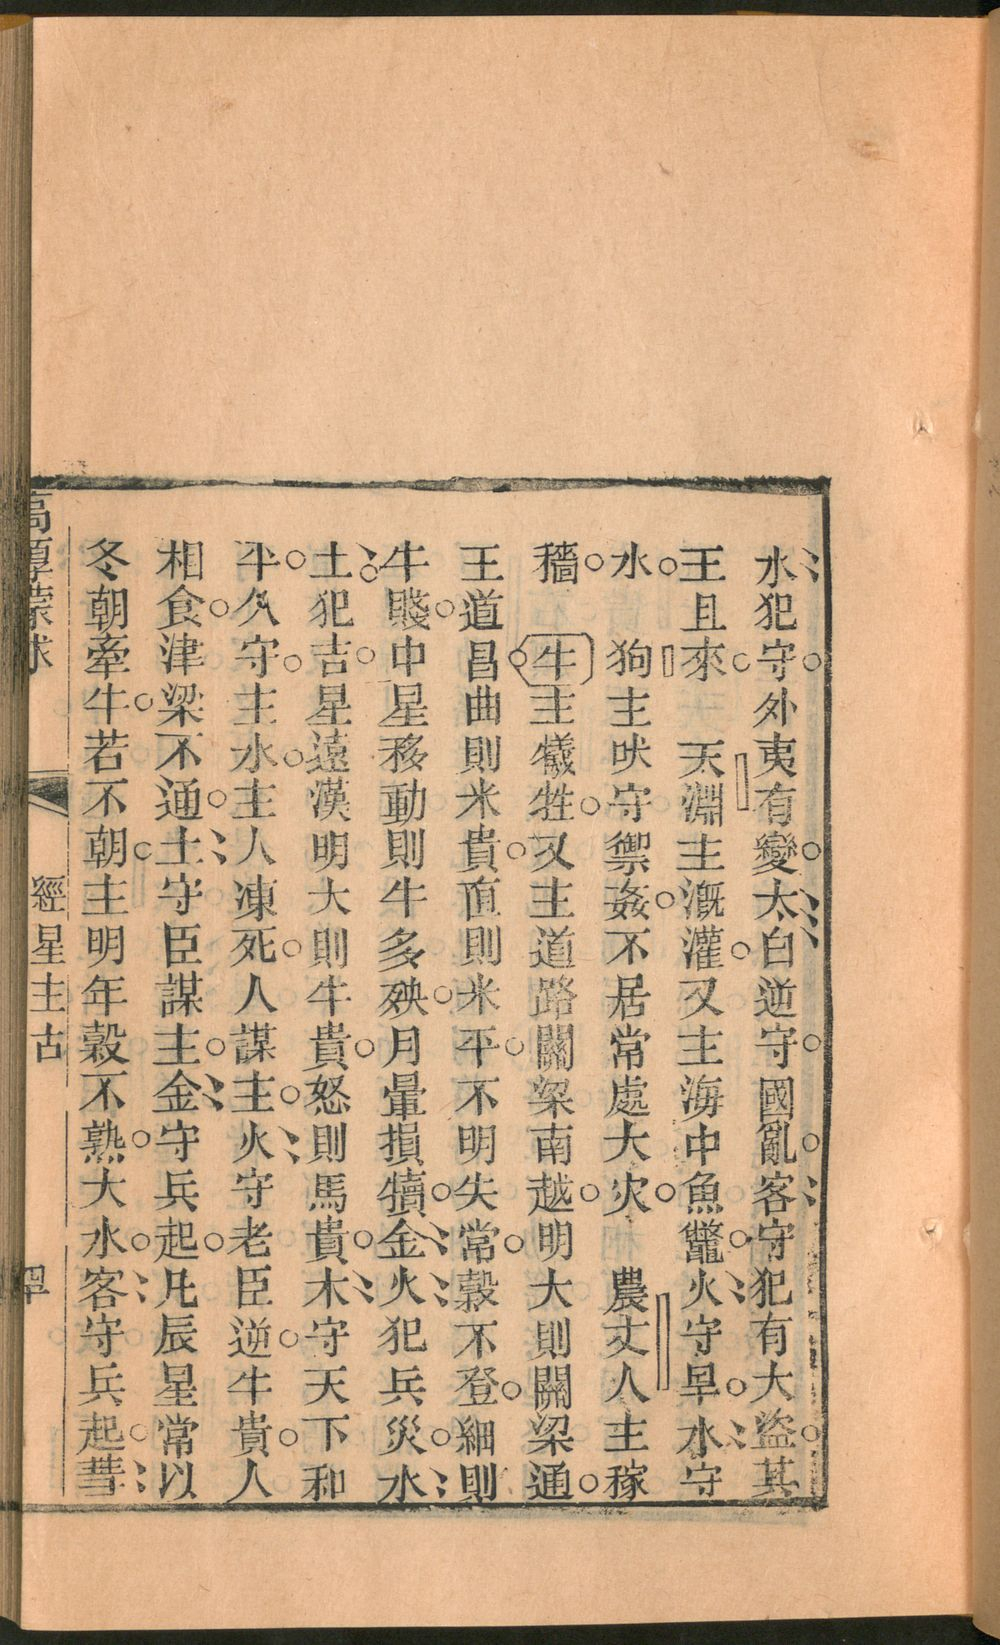 水犯守外夷有變太白逆守國亂客守犯有大盜其
王且來　天淵主漑灌又主海中魚鼈火守旱水守
水　狗主吠守禦姦不居常處大灾　農丈人主稼
穡　牛主犧牲又主道路關梁南越明大則關梁通
王道昌曲則米貴直則米平不明失常穀不登細則
牛賤中星移動則牛多殃月暈損犢金火犯兵災水
土犯吉星遠漢明大則牛貴怒則馬貴木守天下和
平久守主水主人凍死人謀主火守老臣逆牛貴人
相食津梁不通土守臣謀主金守兵起凡辰星常以
冬朝牽牛若不朝主明年穀不熟大水客守兵起彗
高厚蒙求　經星主占